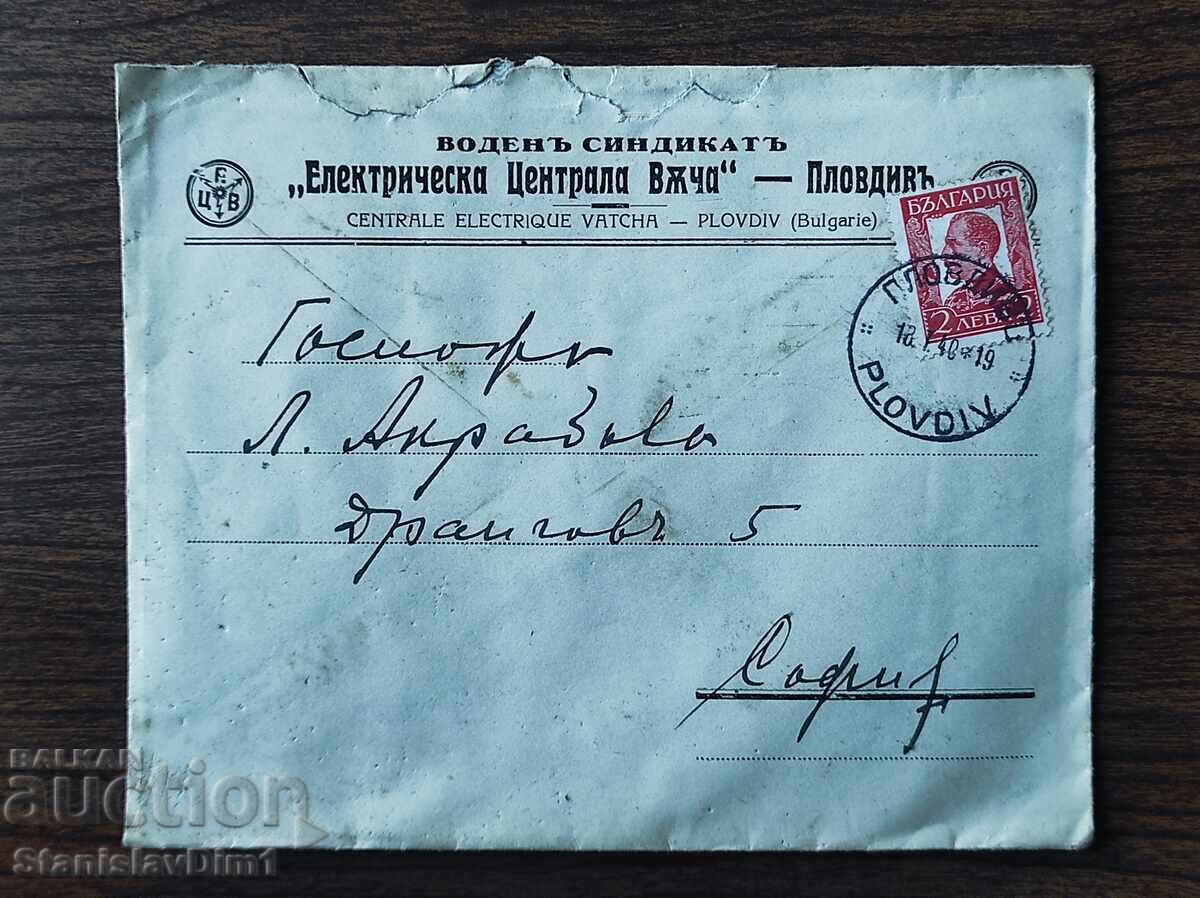 ВОДЕНЪ СИНДИКАТЪ
„Електрическа Централа Вѫча“ — Пловдивъ
CENTRALE ELECTRIQUE VATCHA — PLOVDIV (Bulgarie)
Е
Ц В
БЪЛГАРИЯ
2 ЛЕВА 2
ПЛОВДИВЪ
19
PLOVDIV
Господи
Л. Акрабова
Драговъ 5
София
BALKAN
auction
StanislavDim1